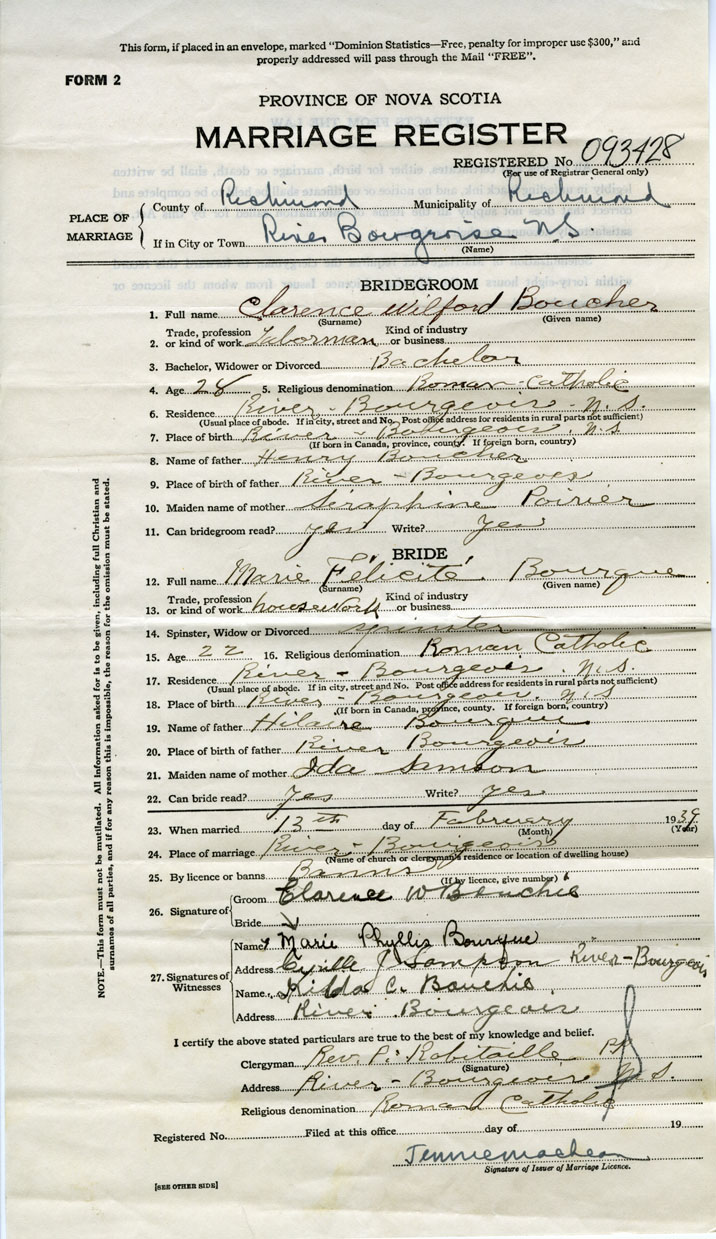 This form, if placed in an envelope, marked "Dominion Statistics—Free, penalty for improper use $300," and
properly addressed will pass through the Mail "FREE".
FORM 2
PROVINCE OF NOVA SCOTIA
MARRIAGE REGISTER
REGISTERED No 093428
(For use of Registrar General only)
PLACE OF MARRIAGE
County of Richmond Municipality of Richmond
If in City or Town River Bourgroise N.S.
(Name)
BRIDEGROOM
1. Full name Clarence Wilford Boucher
(Surname) (Given name)
Trade, profession Kind of industry
2. or kind of work Laborman or business
3. Bachelor, Widower or Divorced Bachelor
4. Age 28 5. Religious denomination Roman-Catholic
6. Residence River-Bourgeois. N.S.
(Usual place of abode. If in city, street and No. Post office address for residents in rural parts not sufficient)
7. Place of birth River-Bourgeois. N.S.
(If born in Canada, province, county. If foreign born, country)
8. Name of father Henry Boucher
9. Place of birth of father River-Bourgeois
10. Maiden name of mother Séraphine Poirier
11. Can bridegroom read? yes Write? yes
BRIDE
12. Full name Marie Félicité Bourque
(Surname) (Given name)
Trade, profession Kind of industry
13. or kind of work housework or business
14. Spinster, Widow or Divorced spinster
15. Age 22 16. Religious denomination Roman Catholic
17. Residence River-Bourgeois. N.S.
(Usual place of abode. If in city, street and No. Post office address for residents in rural parts not sufficient)
18. Place of birth River-Bourgeois. N.S
(If born in Canada, province, county. If foreign born, country)
19. Name of father Hilaire Bourque
20. Place of birth of father River Bourgeois
21. Maiden name of mother Ida Samson
22. Can bride read? yes Write? yes
23. When married 13th day of February 1939
(Month) (Year)
24. Place of marriage River-Bourgeois
(Name of church or clergyman's residence or location of dwelling house)
25. By licence or banns Banns
(If by licence, give number)
26. Signature of
Groom Clarence W Bouchie
Bride
27. Signatures of Witnesses
Name Marie Phyllis Bourque
Address Cyrille J Sampson River-Bourgeois
Name Hilda C. Bouchie
Address River Bourgeois
I certify the above stated particulars are true to the best of my knowledge and belief.
Clergyman Rev. P. Robitaille
(Signature)
Address River-Bourgeois N.S.
Religious denomination Roman Catholic
Registered No. Filed at this office day of 19
Jennie maclean
Signature of Issuer of Marriage Licence.
[SEE OTHER SIDE]
NOTE.—This form must not be mutilated. All information asked for is to be given, including full Christian and
surnames of all parties, and if for any reason this is impossible, the reason for the omission must be stated.